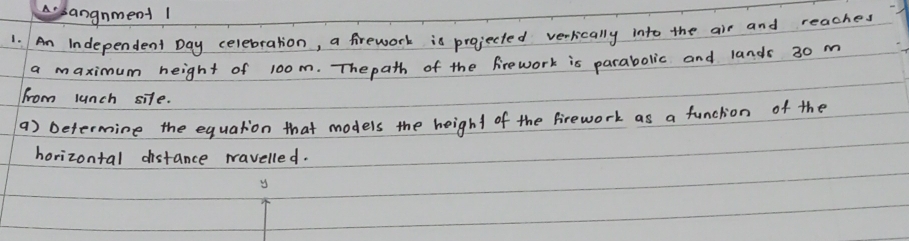 Assangnment 1
1. An Independent Day celebration, a firework is projected vertically into the air and reaches
a maximum height of 100 m. The path of the firework is parabolic and lands 30 m
from lunch site.
a) Determine the equation that models the height of the firework as a function of the
horizontal distance travelled.
y